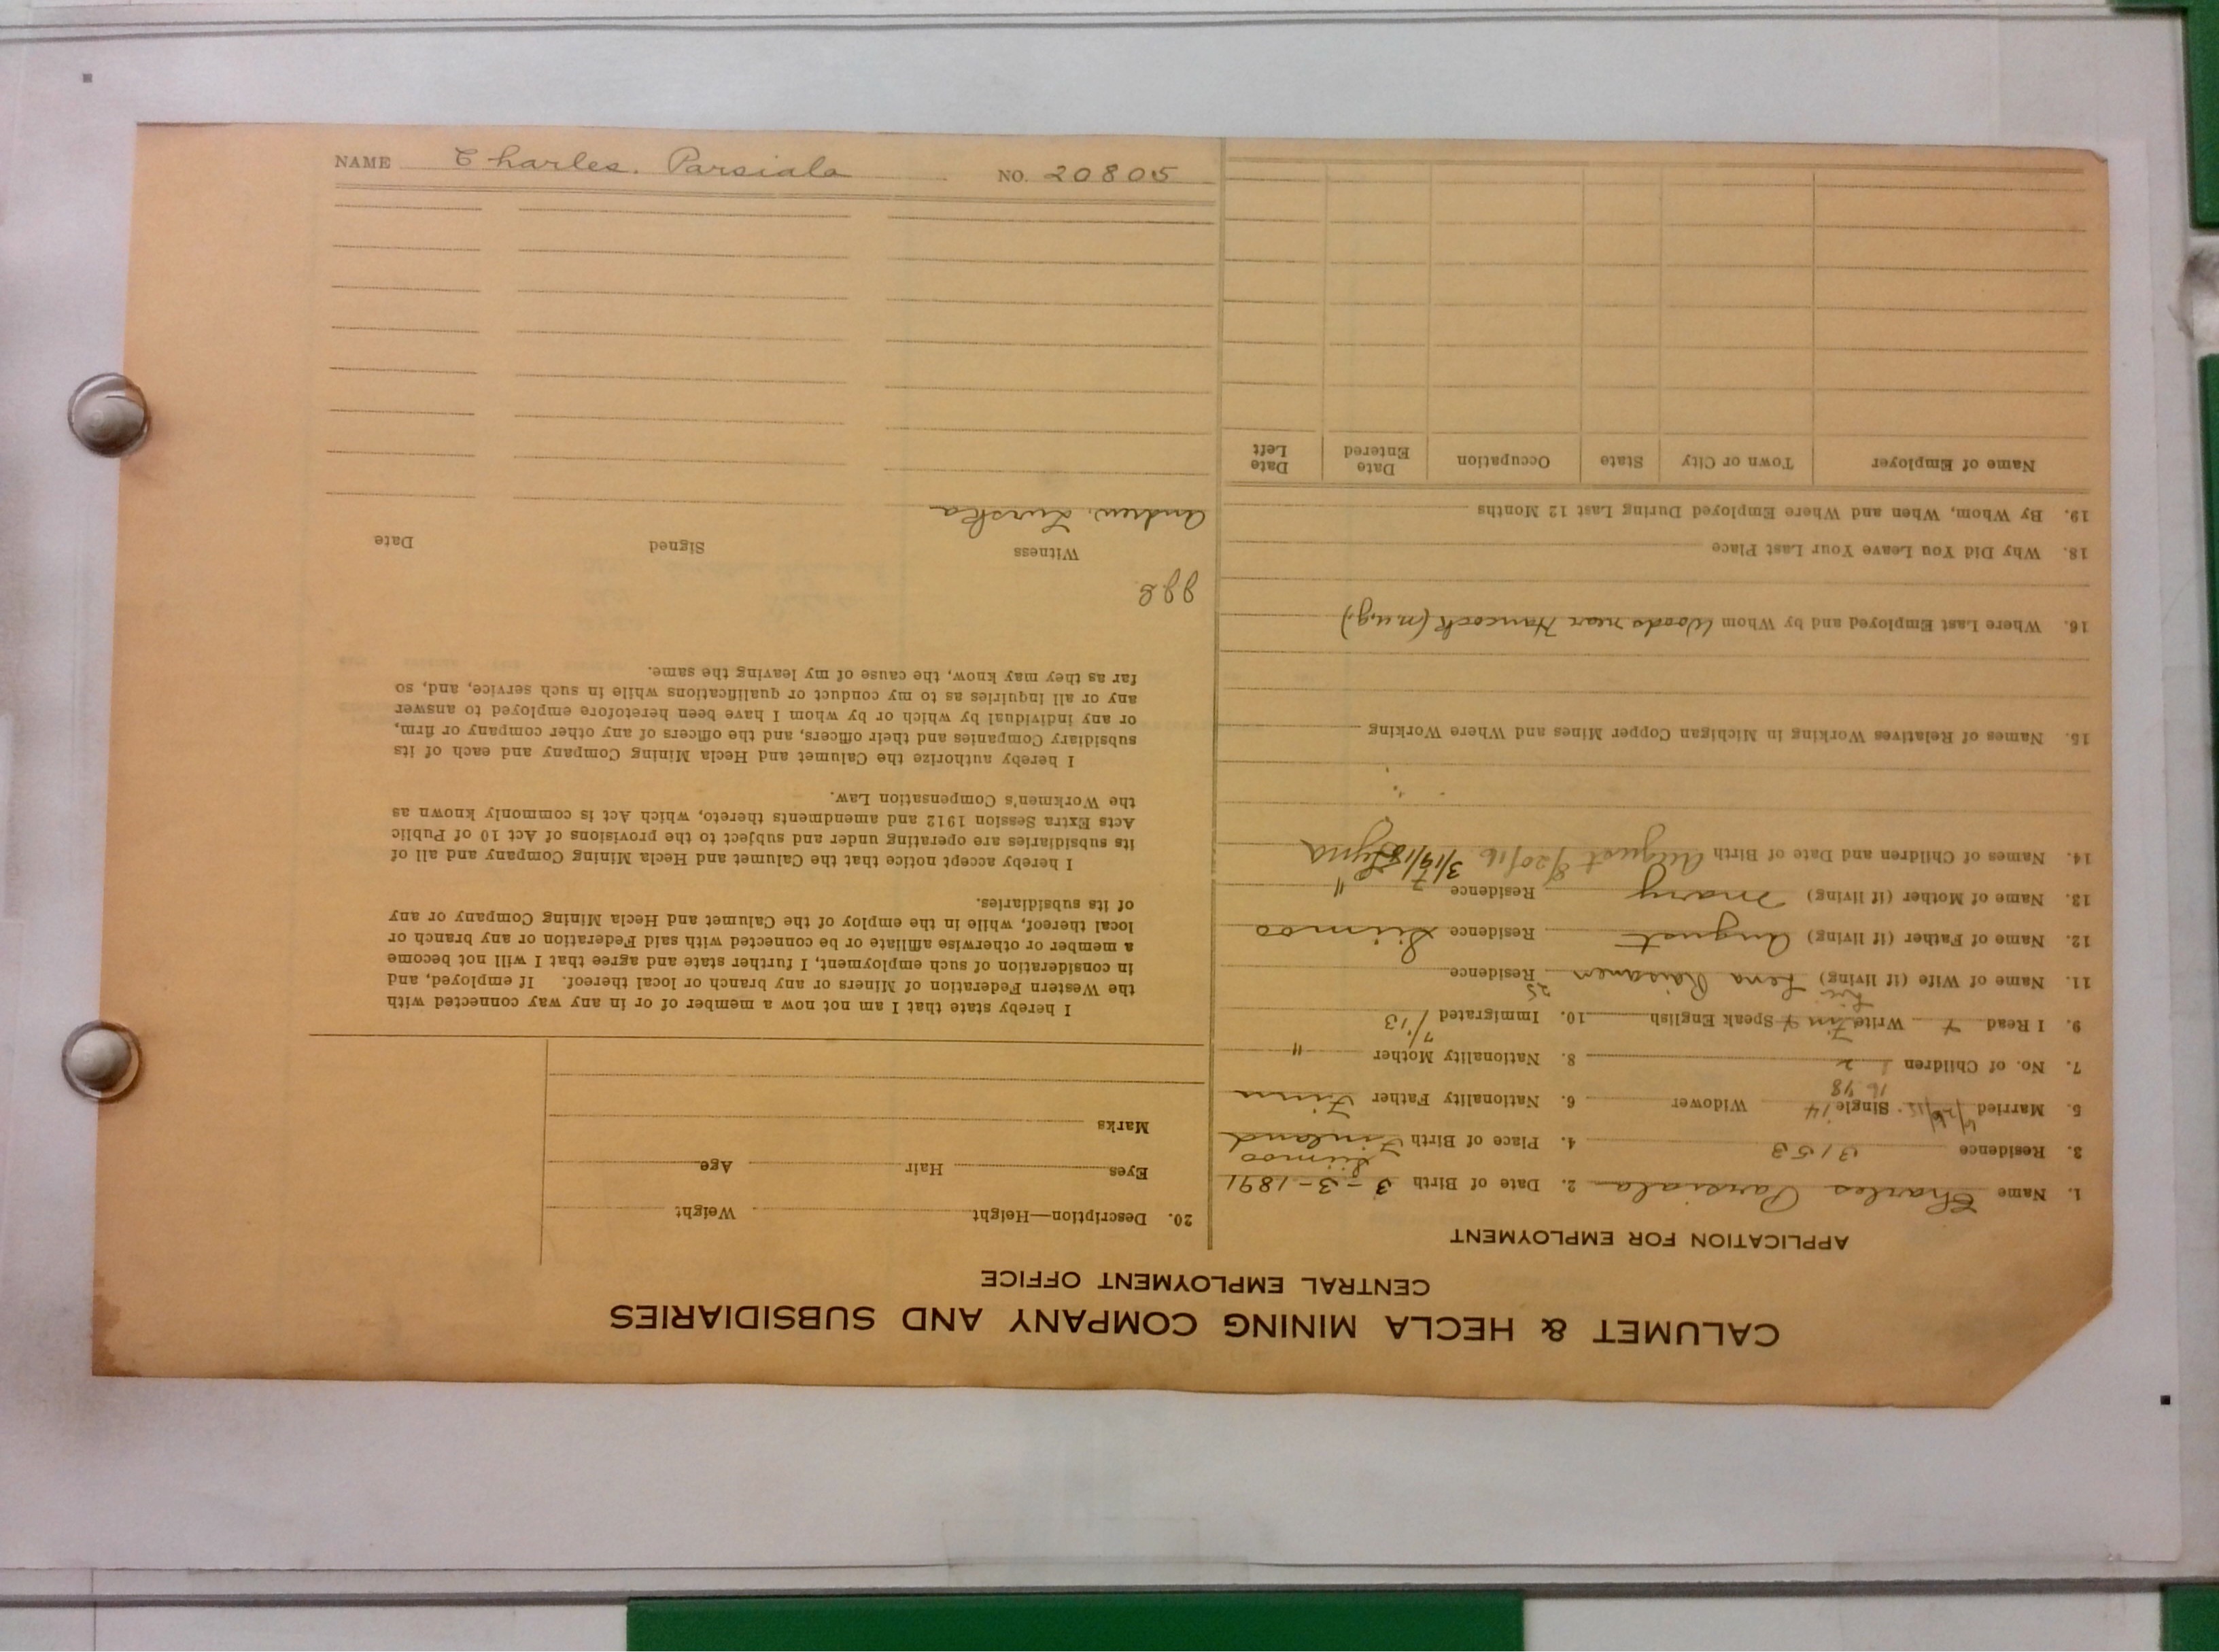 CALUMET & HECLA MINING COMPANY AND SUBSIDIARIES
CENTRAL EMPLOYMENT OFFICE
APPLICATION FOR EMPLOYMENT
1. Name Charles Parsiala 2. Date of Birth 3-3-1891
Siimoo
3. Residence 3153 4. Place of Birth Finland
5. Married Single 14 Widower 6. Nationality Father Finn
16 48
7. No. of Children 2 8. Nationality Mother "
9. I Read Write Finn Speak English 10. Immigrated 7/13
11. Name of Wife (if living) Lena Raisanen Residence
25
12. Name of Father (if living) August Residence Siimoo
13. Name of Mother (if living) Mary Residence "
14. Names of Children and Date of Birth August 8/20/16 3/19/18
15. Names of Relatives Working in Michigan Copper Mines and Where Working
16. Where Last Employed and by Whom Woods near Hancock
18. Why Did You Leave Your Last Place
19. By Whom, When and Where Employed During Last 12 Months
Name of Employer Town or City State Occupation Date Entered Date Left
20. Description—Height Weight
Eyes Hair Age
Marks
I hereby state that I am not now a member of or in any way connected with
the Western Federation of Miners or any branch or local thereof. If employed, and
in consideration of such employment, I further state and agree that I will not become
a member or otherwise affiliate or be connected with said Federation or any branch or
local thereof, while in the employ of the Calumet and Hecla Mining Company or any
of its subsidiaries.
I hereby accept notice that the Calumet and Hecla Mining Company and all of
its subsidiaries are operating under and subject to the provisions of Act 10 of Public
Acts Extra Session 1912 and amendments thereto, which Act is commonly known as
the Workmen's Compensation Law.
I hereby authorize the Calumet and Hecla Mining Company and each of its
subsidiary Companies and their officers, and the officers of any other company or firm,
or any individual by which or by whom I have been heretofore employed to answer
any or all inquiries as to my conduct or qualifications while in such service, and, so
far as they may know, the cause of my leaving the same.
Witness Signed Date
Andrew
NAME Charles. Parsiala NO. 20805